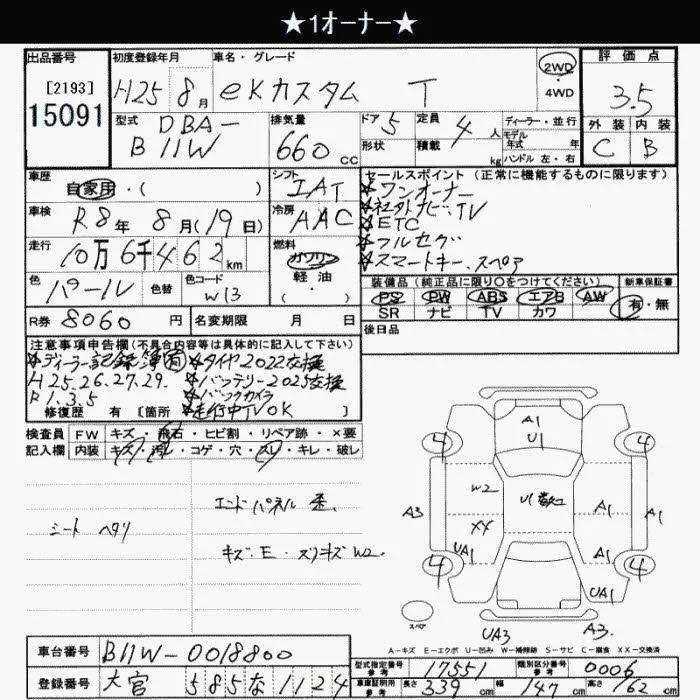 ★1オーナー★
出品番号 初度登録年月 車名・グレード 評価点
[2193] H25年8月 eKカスタム T 2WD・4WD 3.5
15091 外装 内装
型式 DBA-B11W 排気量 660cc ドア 5 定員 4人 ディーラー・並行 C B
形状 積載 kg モデル年式 年 ハンドル 左・右
車歴 自家用・( ) シフト IAT セールスポイント(正常に機能するものに限ります)
★ワンオーナー
車検 R8年 8月(19日) 冷房 AAC ★社外ナビ、TV
★ETC
走行 10万6千462km 燃料 ガソリン ★フルセグ
軽油 ★スマートキー、スペア
・( )
色 パール 色替 色コード W13 装備品(純正品に限り○をつけてください) 新車保証書
PS PW ABS エアB AW 有・無
SR ナビ TV カワ
R券 8060円 名変期限 月 日 後日品
注意事項申告欄(不具合内容等は具体的に記入して下さい)
★ディーラー記録簿有 ★タイヤ2022交換
H25.26.27.29. ★バッテリー2025交換
R1.3.5 ★バックカメラ
修復歴 有[箇所 ★走行中TVOK ]
検査員 FW キズ・飛石・ヒビ割・リペア跡・×要
記入欄 内装 キズ・汚レ・コゲ・穴・スリ・キレ・破レ
エンドパネル歪
シート ヘタリ
キズ、E・スリキズW2
A1
U1
4 4
W2 A3 A1 A1
X4
UA1 A1
4 4
UA1
スペア UA3 A3
A-キズ E-エクボ U-凹み W-補修跡 S-サビ C-腐食 XX-交換済
車台番号 B11W-0018800
登録番号 大宮 585な1124
型式指定番号参考 17551 類別区分番号参考 0006
車庫証明用参考 長さ 339cm 幅 147cm 高さ 162cm